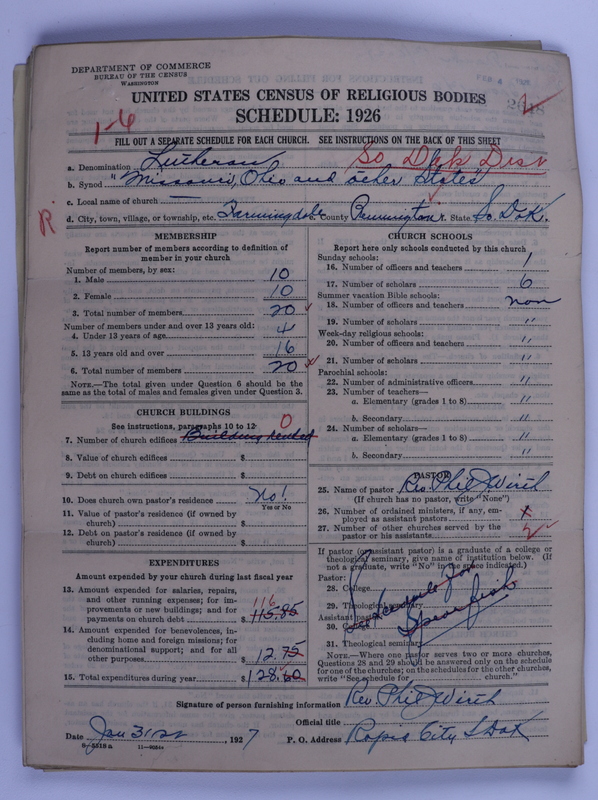 DEPARTMENT OF COMMERCE
BUREAU OF THE CENSUS
WASHINGTON
UNITED STATES CENSUS OF RELIGIOUS BODIES
SCHEDULE: 1926
1-6
FILL OUT A SEPARATE SCHEDULE FOR EACH CHURCH. SEE INSTRUCTIONS ON THE BACK OF THIS SHEET
a. Denomination Lutheran So. Dak Dist
b. Synod "Missouri, Ohio and other States"
c. Local name of church —
R
d. City, town, village, or township, etc. Farmingdale County Pennington State So. Dak.
MEMBERSHIP
Report number of members according to definition of member in your church
Number of members, by sex:
1. Male 10
2. Female 10
3. Total number of members 20
Number of members under and over 13 years old:
4. Under 13 years of age 4
5. 13 years old and over 16
6. Total number of members 20
NOTE.—The total given under Question 6 should be the same as the total of males and females given under Question 3.
CHURCH BUILDINGS
See instructions, paragraphs 10 to 12 0
7. Number of church edifices Building rented
8. Value of church edifices $
9. Debt on church edifices $
10. Does church own pastor's residence No!
Yes or No
11. Value of pastor's residence (if owned by church) $
12. Debt on pastor's residence (if owned by church) $
EXPENDITURES
Amount expended by your church during last fiscal year
13. Amount expended for salaries, repairs, and other running expenses; for improvements or new buildings; and for payments on church debt $ 115.85 116
14. Amount expended for benevolences, including home and foreign missions; for denominational support; and for all other purposes $ 12.75
15. Total expenditures during year $ 128.60
CHURCH SCHOOLS
Report here only schools conducted by this church
Sunday schools:
16. Number of officers and teachers 1
17. Number of scholars 6
Summer vacation Bible schools:
18. Number of officers and teachers non
19. Number of scholars "
Week-day religious schools:
20. Number of officers and teachers "
21. Number of scholars "
Parochial schools:
22. Number of administrative officers "
23. Number of teachers—
a. Elementary (grades 1 to 8) "
b. Secondary "
24. Number of scholars—
a. Elementary (grades 1 to 8) "
b. Secondary "
PASTOR
25. Name of pastor Rev. Phil J Wirth
(If church has no pastor, write "None")
26. Number of ordained ministers, if any, employed as assistant pastors x
27. Number of other churches served by the pastor or his assistants 2
If pastor (or assistant pastor) is a graduate of a college or theological seminary, give name of institution below. (If not a graduate, write "No" in the space indicated.)
Pastor:
28. College
29. Theological seminary
Assistant pastor:
30. College
31. Theological seminary
See Schedule for Spearfish
NOTE.—Where one pastor serves two or more churches, Questions 28 and 29 should be answered only on the schedule for one of the churches; on the schedules for the other churches, write "See schedule for church."
Signature of person furnishing information Rev. Phil J Wirth
Official title
Date Jan 31st, 1927 P. O. Address Rapid City S Dak
8-5518 a 11-9054a